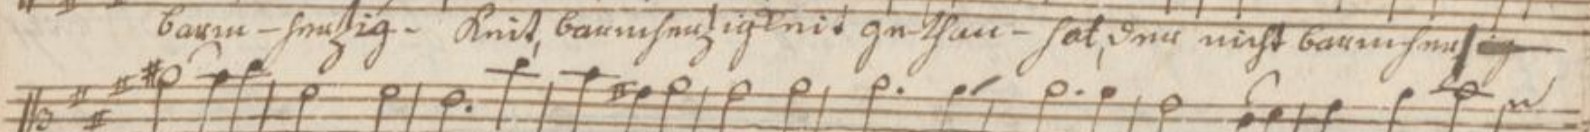 barm-herzig-Keit, barmherzigkeit ge-than-hat, der nicht barmherzig